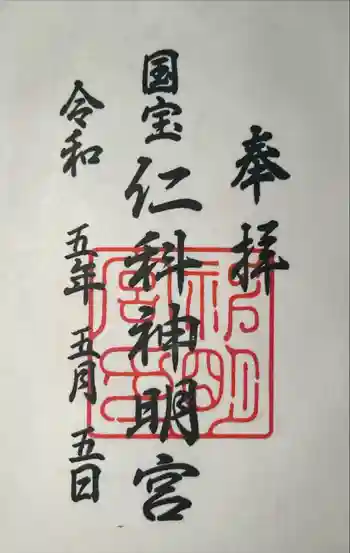 奉拝
国宝
仁科神明宮
令和五年五月五日